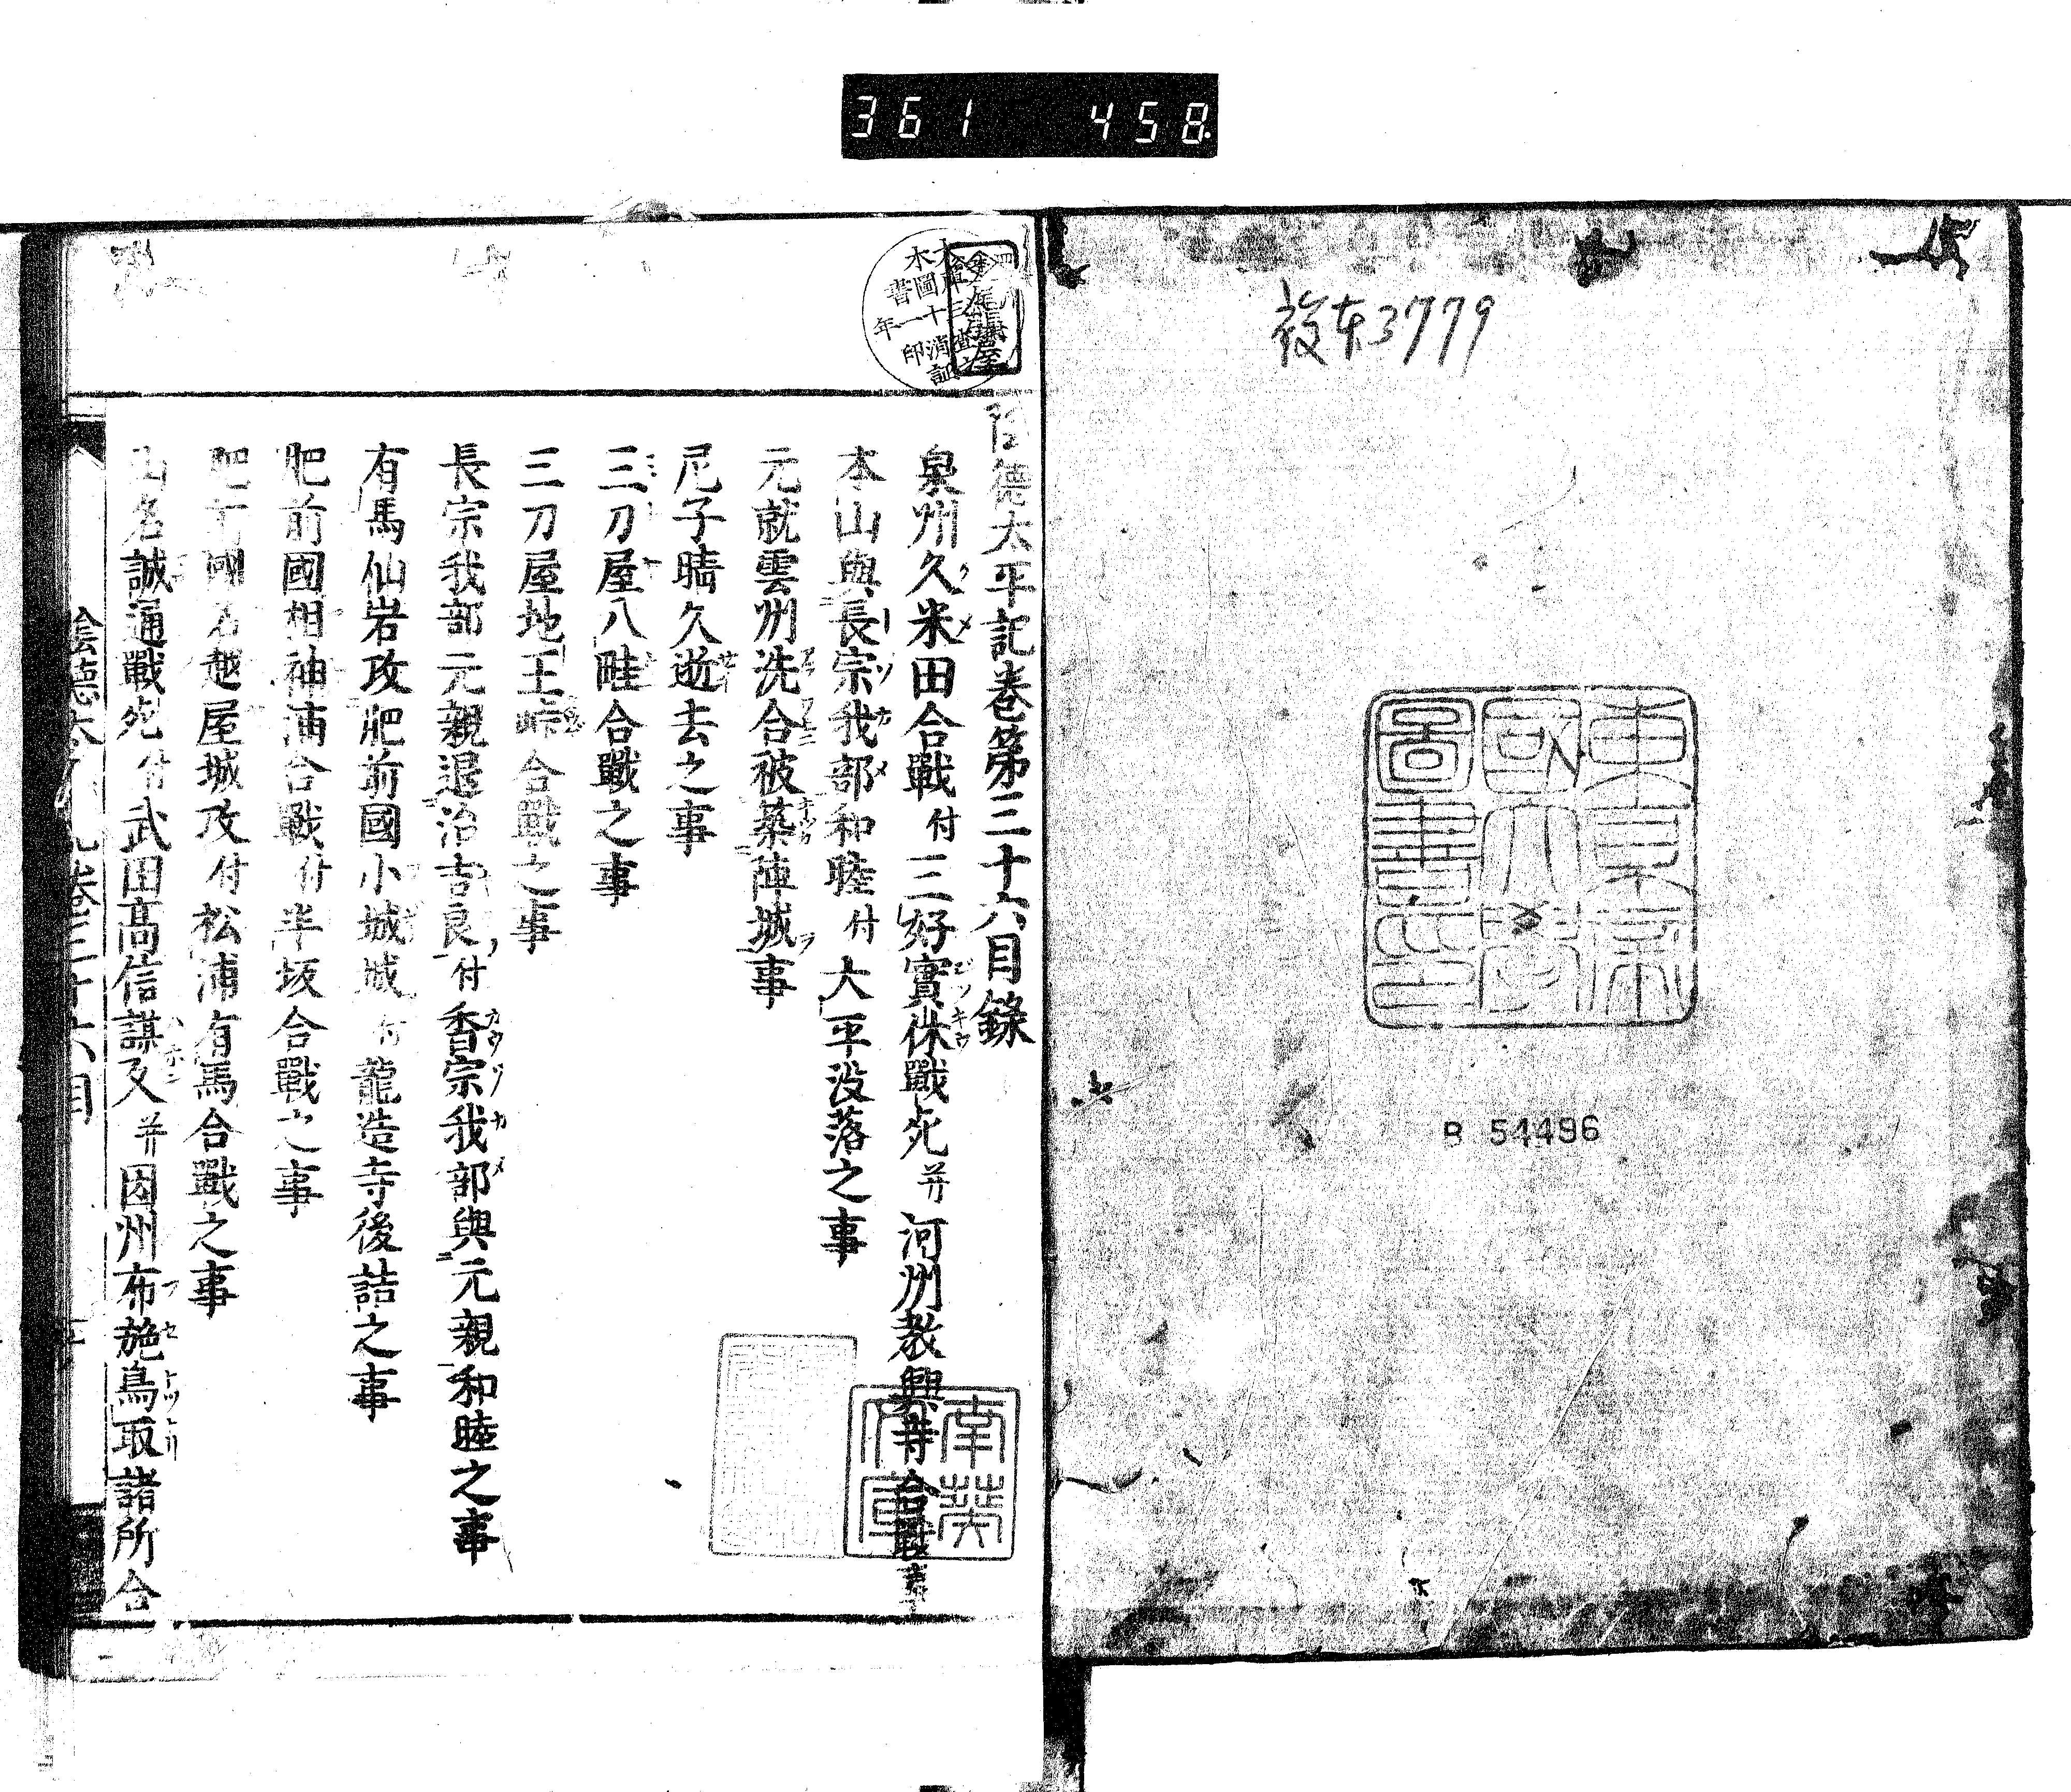 361 458
設東3779
東京帝國大學圖書之印
B 54496
陰德太平記卷第三十六目錄
泉州久米田合戰付三好實休戰死并河州教興寺合戰事
本山與長宗我部和睦付大平没落之事
元就雲州洗合被築陣城事
尼子晴久逝去之事
三刀屋八畦合戰之事
三刀屋地王峠合戰之事
長宗我部元親退治吉良付香宗我部與元親和睦之事
有馬仙岩攻肥前國小城城付龍造寺後詰之事
肥前國相神浦合戰付半坂合戰之事
肥前國名越屋城攻付松浦有馬合戰之事
山名誠通戰死付武田髙信謀反并因州布施鳥取諸所合
南葵文庫
陰德太平記卷三十六目